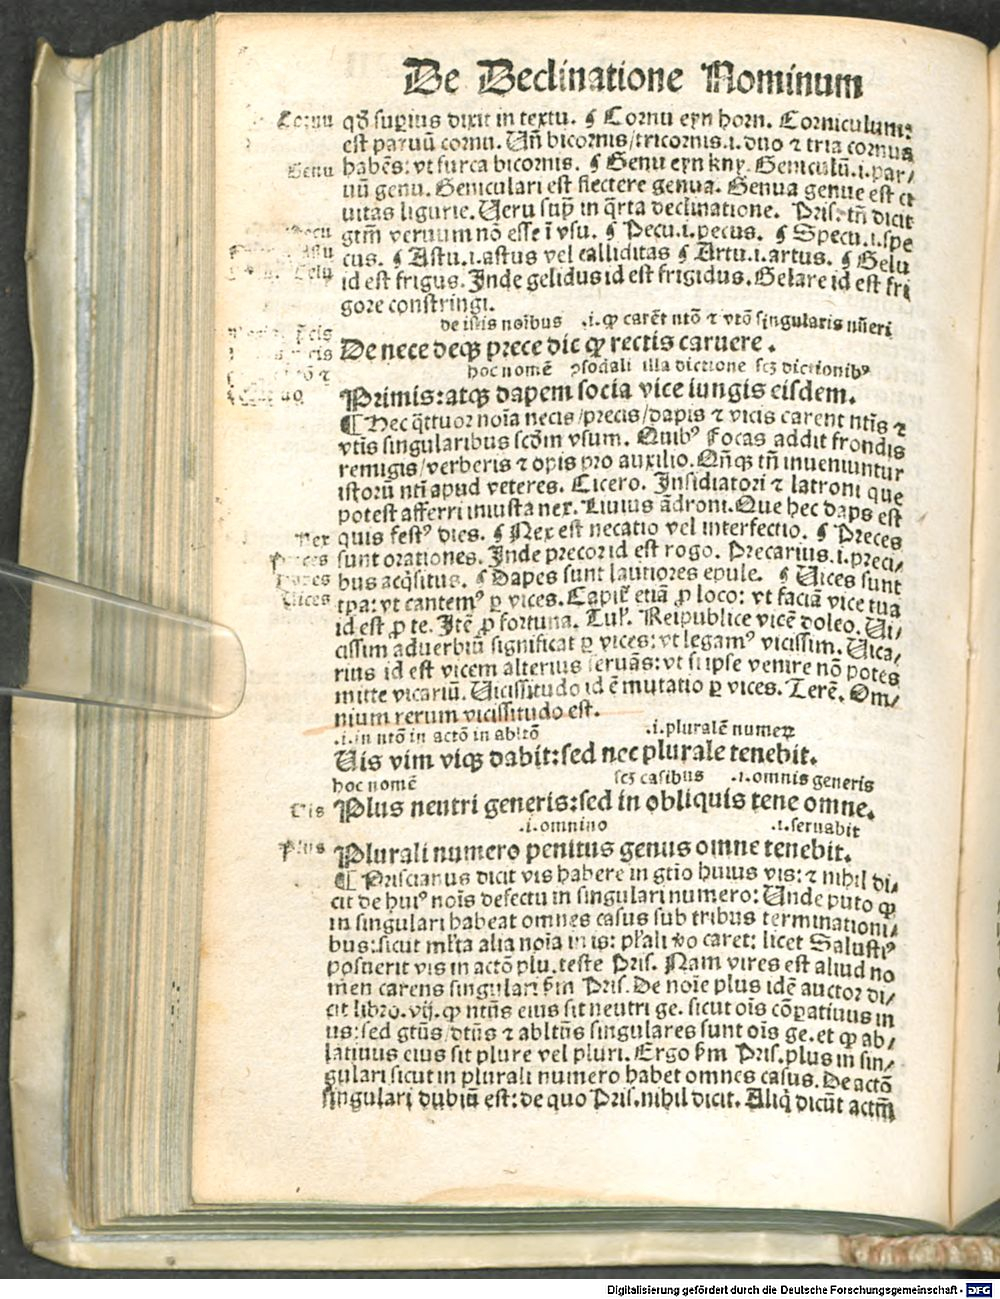 De Declinatione Nominum
Cornu qđ supius dixit in textu. ¶ Cornu eyn horn. Corniculum:
est paruū cornu. Uñ bicornis/tricornis.i.duo ⁊ tria cornua
Genu habēs: vt furca bicornis. ¶ Genu eyn kny. Geniculū.i.par/
uū genu. Geniculari est flectere genua. Genua genue est ci
uitas ligurie. Ueru sup̄ in q̄rta declinatione. Pris. tñ dicit
Pecu gtm̄ veruum nō esse ī vsu. ¶ Pecu.i.pecus. ¶ Specu.i.spe
Astu cus. ¶ Astu.i.astus vel calliditas ¶ Artu.i.artus. ¶ Gelu
Gelu id est frigus. Inde gelidus id est frigidus. Gelare id est fri
gore constringi.
de istis noībus .i. ꝙ carēt ntō ⁊ vtō singularis nūeri
De nece deqꝫ prece dic ꝙ rectis caruere.
hoc nomē ꝯsodali illa dictione scꝫ dictionibꝰ
Primis: atqꝫ dapem socia vice iungis eisdem.
¶ Hec q̄ttuor noīa necis/precis/dapis ⁊ vicis carent ntīs ⁊
vtīs singularibus scđm vsum. Quibꝰ Focas addit frondis
remigis/verberis ⁊ opis pro auxilio. Qñqꝫ tñ inueniuntur
istorū ntī apud veteres. Cicero. Insidiatori ⁊ latroni que
potest afferri iniusta nex. Liuius ādroni. Que hec daps est
Nex quis festꝰ dies. ¶ Nex est necatio vel interfectio. ¶ Preces
Preces sunt orationes. Inde precor id est rogo. Precarius.i.preci/
Dapes bus acq̄situs. ¶ Dapes sunt lautiores epule. ¶ Uices sunt
Uices tpa: vt cantemꝰ ꝑ vices. Capit̄ etiā ꝓ loco: vt faciā vice tua
id est ꝓ te. Itē ꝓ fortuna. Tul̄. Reipublice vicē doleo. Ui/
cissim aduerbiū significat ꝑ vices: vt legamꝰ vicissim. Uica/
rius id est vicem alterius seruās: vt si ipse venire nō potes
mitte vicariū. Uicissitudo id ē mutatio ꝑ vices. Terē. Om/
nium rerum vicissitudo est.
.i. in ntō in actō in abltō .i. pluralē numeꝝ
Uis vim viqꝫ dabit: sed nec plurale tenebit.
hoc nomē scꝫ casibus .i. omnis generis
Uis Plus neutri generis: sed in obliquis tene omne.
.i. omnino .i. seruabit
Plus Plurali numero penitus genus omne tenebit.
¶ Priscianus dicit vis habere in gtīo huius vis: ⁊ nihil di/
cit de huiꝰ noīs defectu in singulari numero: Unde puto ꝙ
in singulari habeat omnes casus sub tribus terminationi/
bus: sicut ml̄ta alia noīa in is: pl̄ali v̄o caret: licet Salustiꝰ
posuerit vis in actō plu. teste Pris. Nam vires est aliud no
men carens singulari s̄m Pris. De noīe plus idē auctor di/
cit libro. vij. ꝙ ntūs eius sit neutri ge. sicut oīs cōpatiuus in
us: sed gtūs/dtūs ⁊ abltūs singulares sunt oīs ge. et ꝙ ab/
latiuus eius sit plure vel pluri. Ergo s̄m Pris. plus in sin/
gulari sicut in plurali numero habet omnes casus. De actō
singulari dubiū est: de quo Pris. nihil dicit. Aliq̄ dicūt actm̄
Digitalisierung gefördert durch die Deutsche Forschungsgemeinschaft - DFG